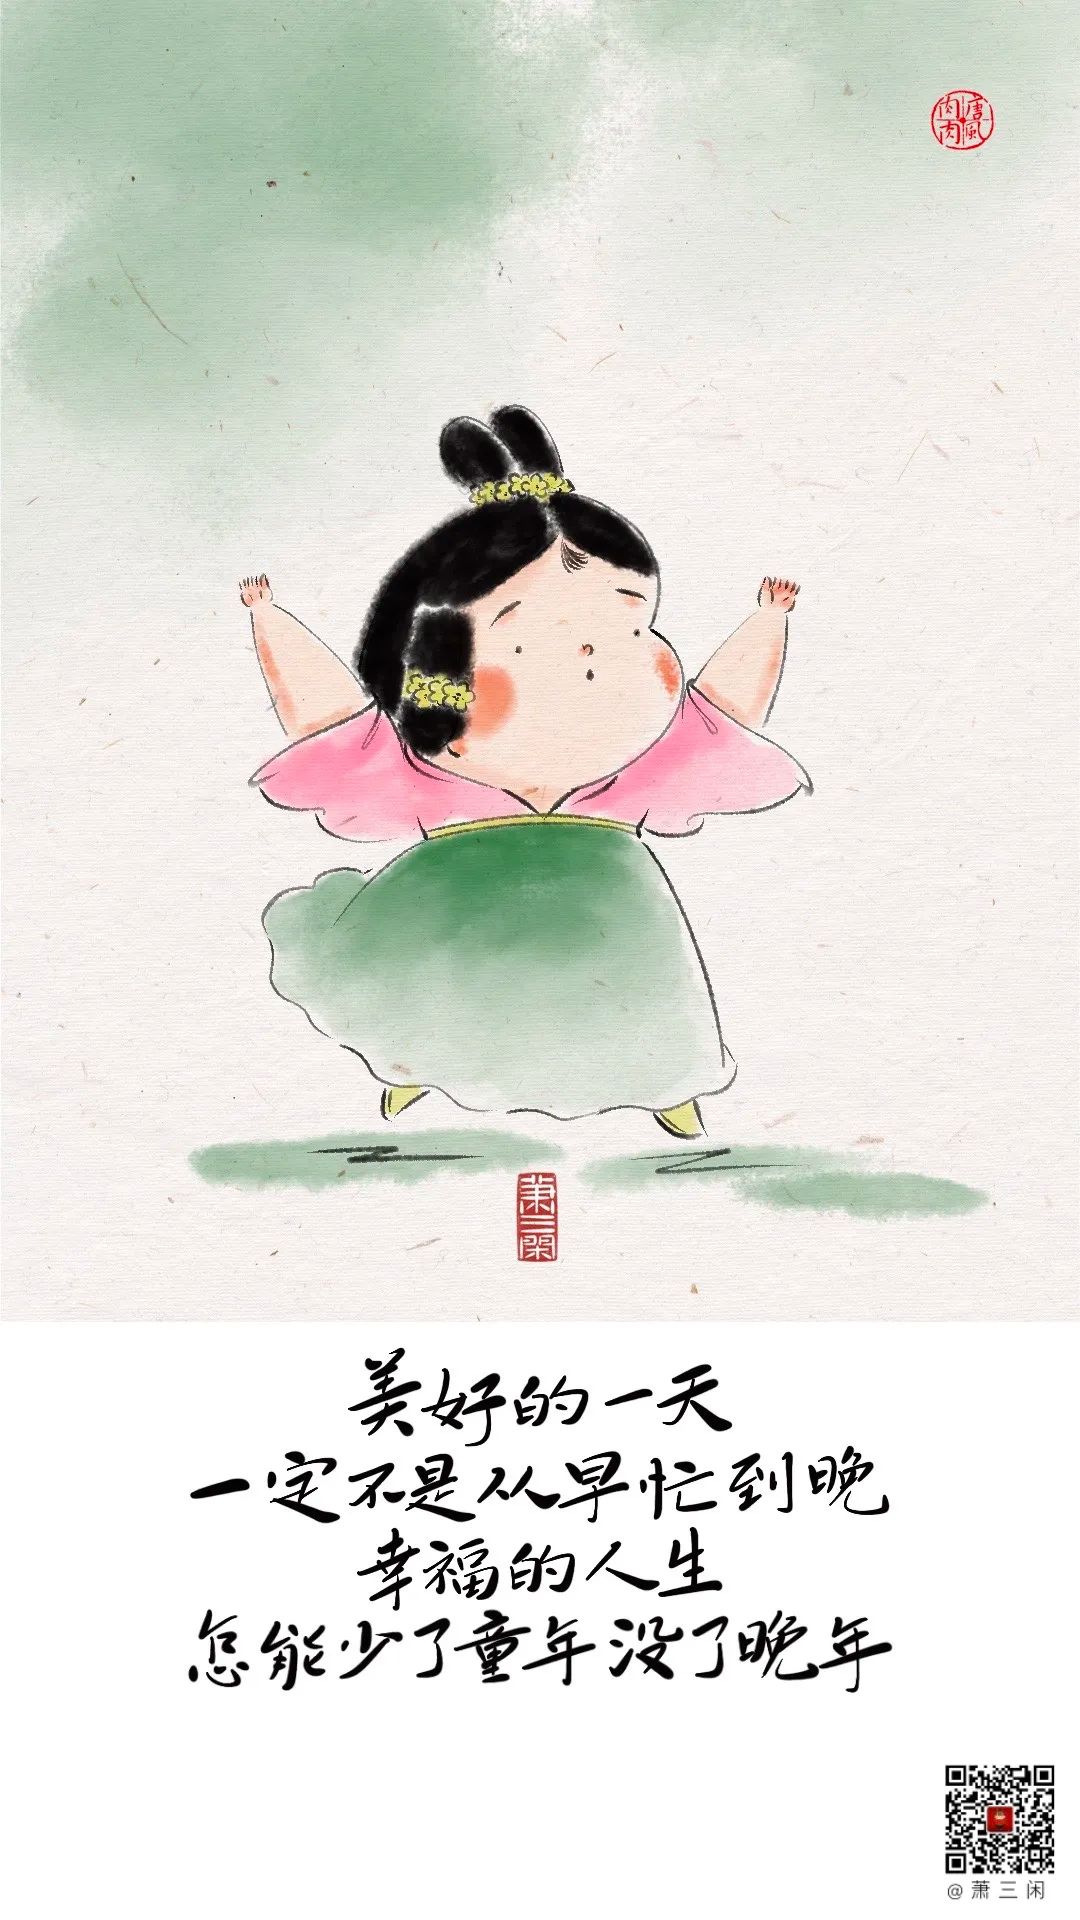 唐風
肉肉
萧三閑
美好的一天
一定不是从早忙到晚
幸福的人生
怎能少了童年没了晚年
@萧三闲